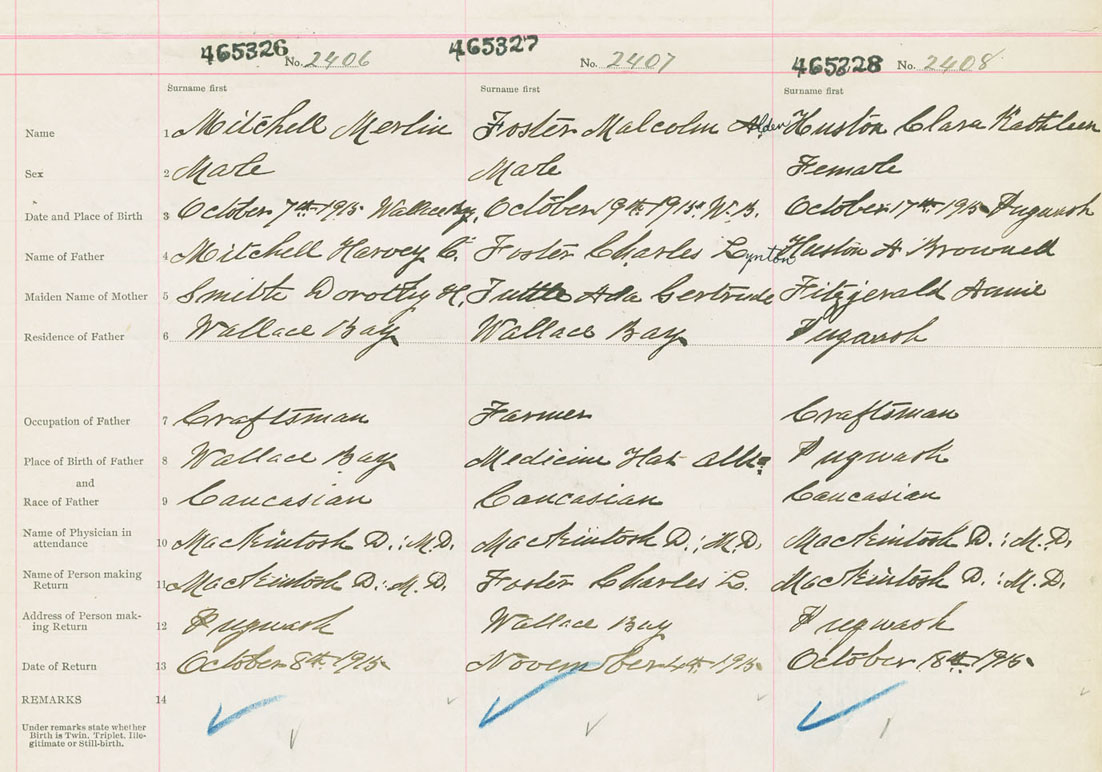 465326 No. 2406 465327 No. 2407 465328 No. 2408
Surname first Surname first Surname first
Name 1 Mitchell Merlin Foster Malcolm Alder Huston Clara Kathleen
Sex 2 Male Male Female
Date and Place of Birth 3 October 7th 1915 Wallace Bay, October 19th 1915 W.B. October 17th 1915 Pugwash
Name of Father 4 Mitchell Harvey C. Foster Charles Lynton Huston A Brownell
Maiden Name of Mother 5 Smith Dorothy H, Tuttle Ada Gertrude Fitzgerald Annie
Residence of Father 6 Wallace Bay Wallace Bay Pugwash
Occupation of Father 7 Craftsman Farmer Craftsman
Place of Birth of Father 8 Wallace Bay Medicine Hat Alta Pugwash
and
Race of Father 9 Caucasian Caucasian Caucasian
Name of Physician in attendance 10 MacKintosh D.: M.D. MacKintosh D.: M.D. MacKintosh D.: M.D.
Name of Person making Return 11 MacKintosh D: M.D. Foster Charles L. MacKintosh D.: M.D.
Address of Person mak-ing Return 12 Pugwash Wallace Bay Pugwash
Date of Return 13 October 8th 1915 November 4th 1915 October 18th 1915
REMARKS 14
Under remarks state whether
Birth is Twin, Triplet, Ille-
gitimate or Still-birth.